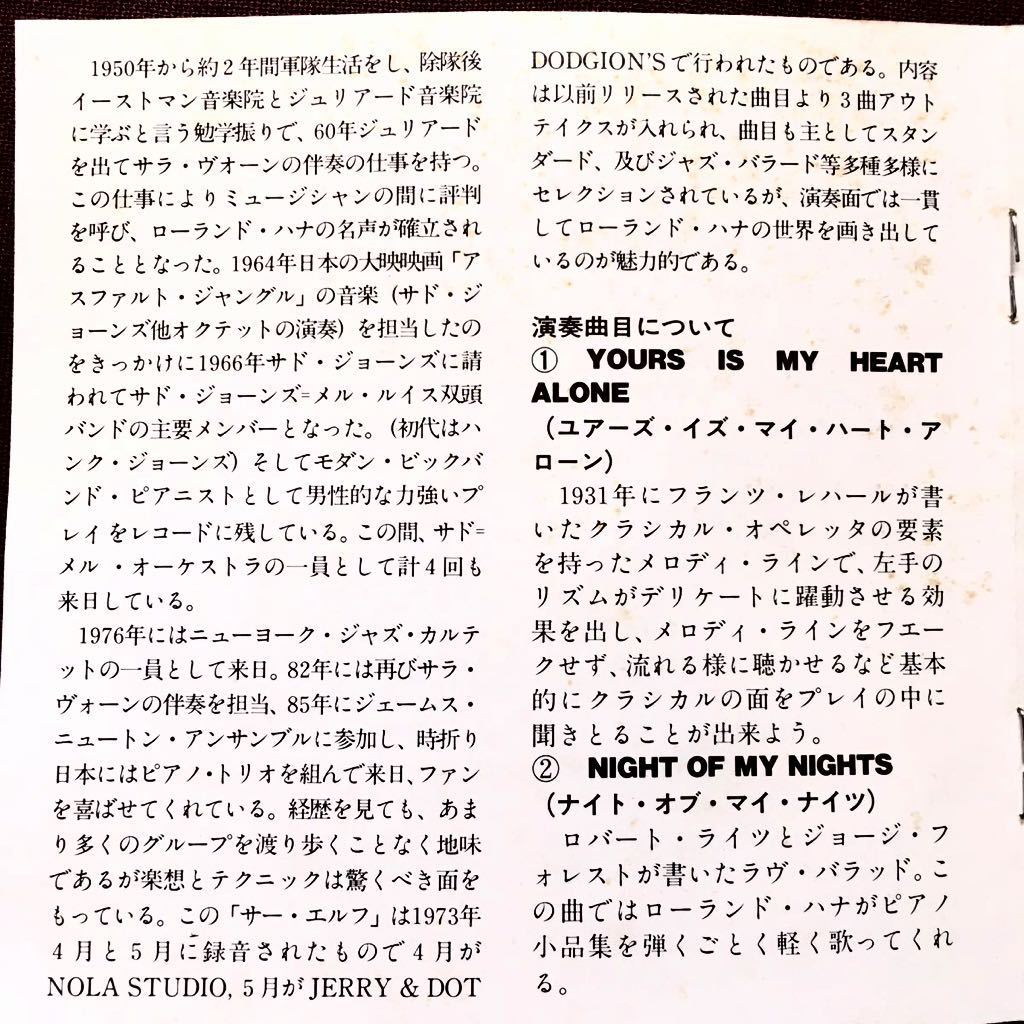 1950年から約2年間軍隊生活をし、除隊後
イーストマン音楽院とジュリアード音楽院
に学ぶと言う勉学振りで、60年ジュリアード
を出てサラ・ヴォーンの伴奏の仕事を持つ。
この仕事によりミュージシャンの間に評判
を呼び、ローランド・ハナの名声が確立され
ることとなった。1964年日本の大映映画「ア
スファルト・ジャングル」の音楽（サド・ジ
ョーンズ他オクテットの演奏）を担当したの
をきっかけに1966年サド・ジョーンズに請
われてサド・ジョーンズ=メル・ルイス双頭
バンドの主要メンバーとなった。（初代はハ
ンク・ジョーンズ）そしてモダン・ビックバ
ンド・ピアニストとして男性的な力強いプ
レイをレコードに残している。この間、サド=
メル・オーケストラの一員として計4回も
来日している。
1976年にはニューヨーク・ジャズ・カルテ
ットの一員として来日。82年には再びサラ・
ヴォーンの伴奏を担当、85年にジェームス・
ニュートン・アンサンブルに参加し、時折り
日本にはピアノ・トリオを組んで来日、ファン
を喜ばせてくれている。経歴を見ても、あま
り多くのグループを渡り歩くことなく地味
であるが楽想とテクニックは驚くべき面を
もっている。この「サー・エルフ」は1973年
4月と5月に録音されたもので4月が
NOLA STUDIO, 5月がJERRY & DOT
DODGION'Sで行われたものである。内容
は以前リリースされた曲目より3曲アウト
テイクスが入れられ、曲目も主としてスタン
ダード、及びジャズ・バラード等多種多様に
セレクションされているが、演奏面では一貫
してローランド・ハナの世界を画き出して
いるのが魅力的である。
演奏曲目について
① YOURS IS MY HEART
ALONE
（ユアーズ・イズ・マイ・ハート・ア
ローン）
1931年にフランツ・レハールが書
いたクラシカル・オペレッタの要素
を持ったメロディ・ラインで、左手の
リズムがデリケートに躍動させる効
果を出し、メロディ・ラインをフエー
クせず、流れる様に聴かせるなど基本
的にクラシカルの面をプレイの中に
聞きとることが出来よう。
② NIGHT OF MY NIGHTS
（ナイト・オブ・マイ・ナイツ）
ロバート・ライツとジョージ・フ
ォレストが書いたラヴ・バラッド。こ
の曲ではローランド・ハナがピアノ
小品集を弾くごとく軽く歌ってくれ
る。